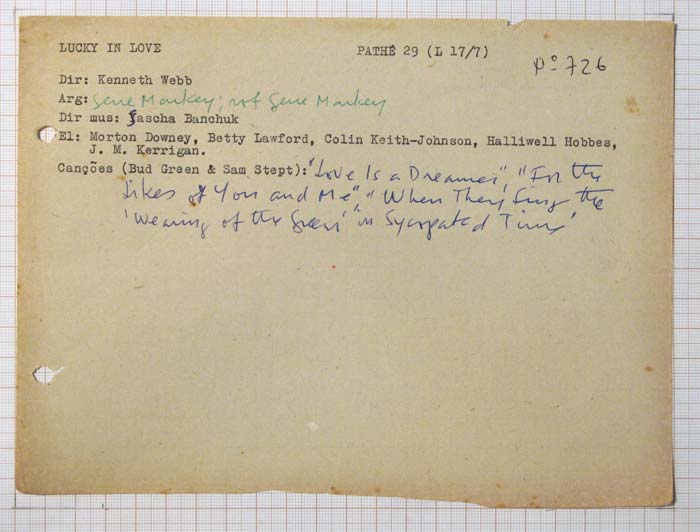 LUCKY IN LOVE PATHÉ 29 (L 17/7) Pº 726
Dir: Kenneth Webb
Arg: Gene Markey; rof Gene Markey
Dir mus: Sascha Banchuk
El: Morton Downey, Betty Lawford, Colin Keith-Johnson, Halliwell Hobbes,
J. M. Kerrigan.
Canções (Bud Green & Sam Stept): "Love Is a Dreamer", "For the
Likes of You and Me", "When They Sing the
'Wearing of the Green' in Syncopated Time"